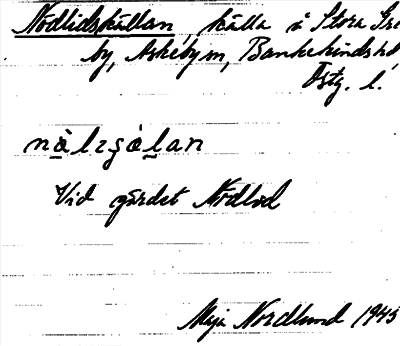 Nödlidskällan källa i Stora Gre
by, Askeby sn, Bankekinds hd
Östg. l.
Vid gärdet Nödlid
Maja Nordlund 1945